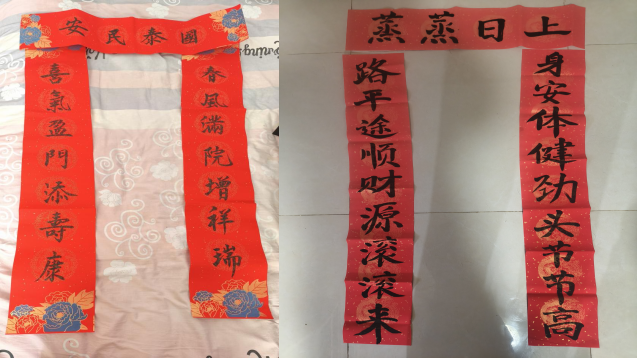 國泰民安
春風滿院增祥瑞
喜氣盈門添壽康
蒸蒸日上
身安体健劲头节节高
路平途顺财源滚滚来